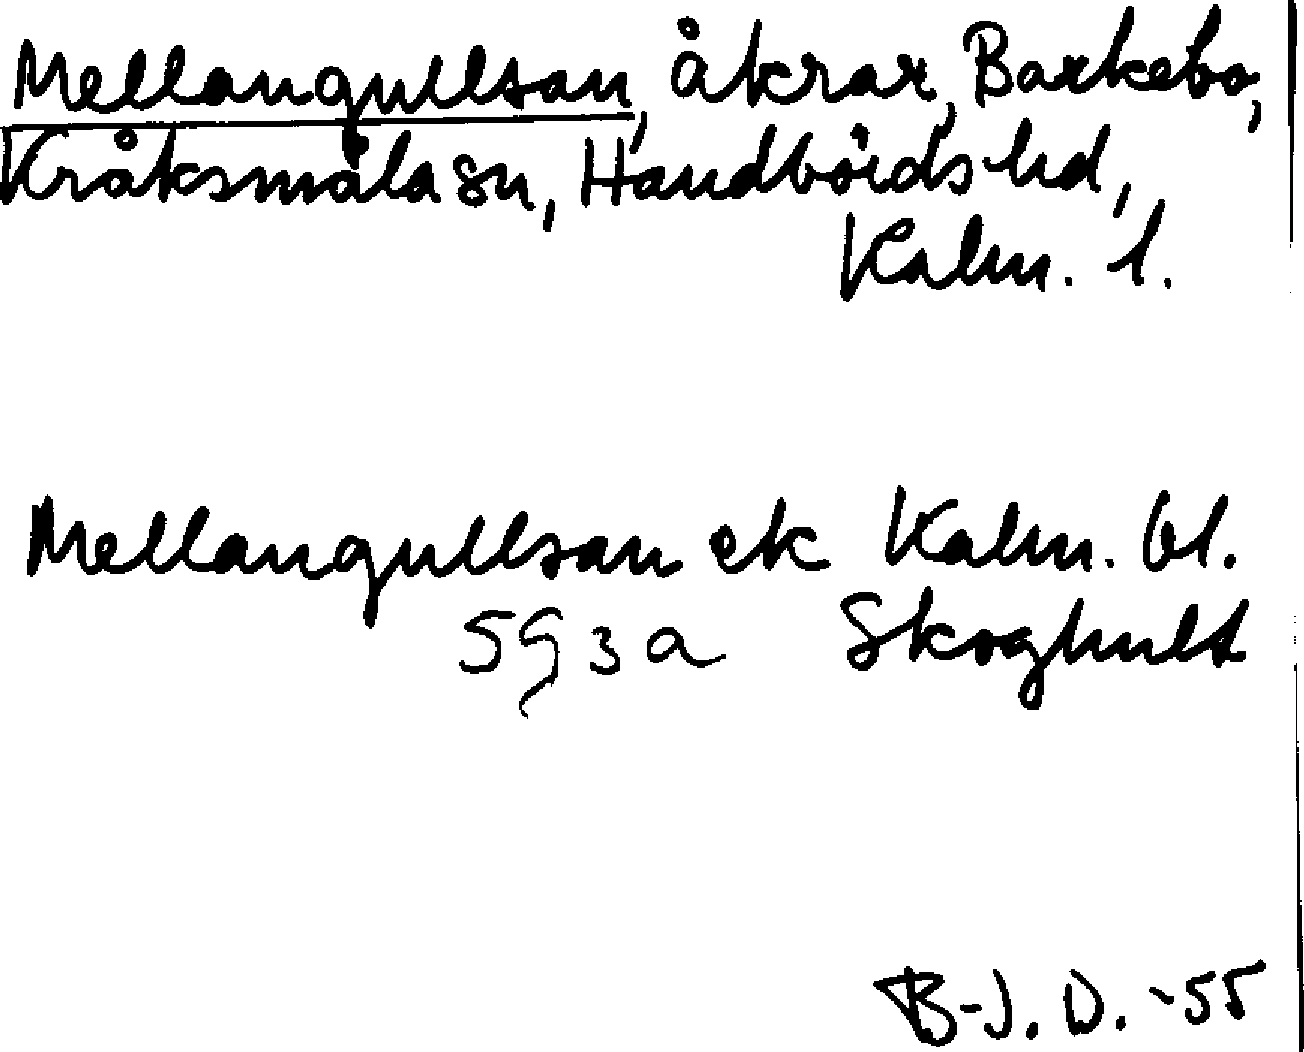 Mellangullsan, åkrar, Barkebo,
Kråksmåla sn, Handbörds hd,
Kalm. l.
Mellangullsan ek Kalm. bl.
5G3a Skoghult
B-J. D. -55